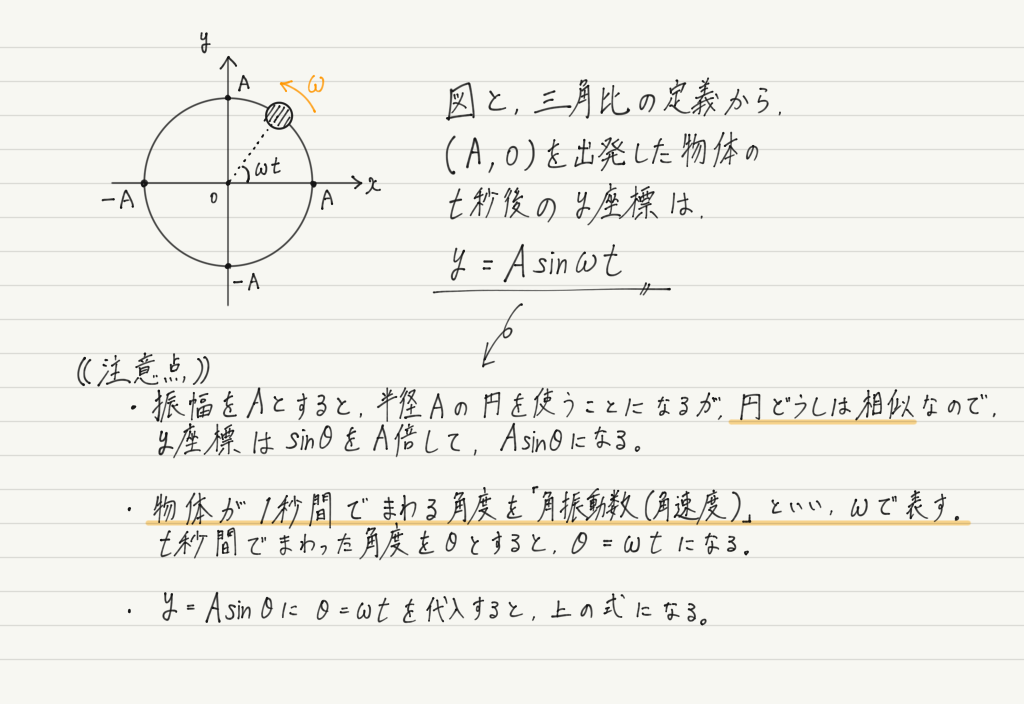 y
A
ω
ωt
-A
0
A
x
-A
図と,三角比の定義から,
(A,0)を出発した物体の
t秒後のy座標は,
y=Asinωt
《注意点》
・振幅をAとすると,半径Aの円を使うことになるが,円どうしは相似なので,
y座標はsinθをA倍して,Asinθになる。
・物体が1秒間でまわる角度を「角振動数(角速度)」といい,ωで表す。
t秒間でまわった角度をθとすると,θ=ωtになる。
・y=Asinθにθ=ωtを代入すると,上の式になる。